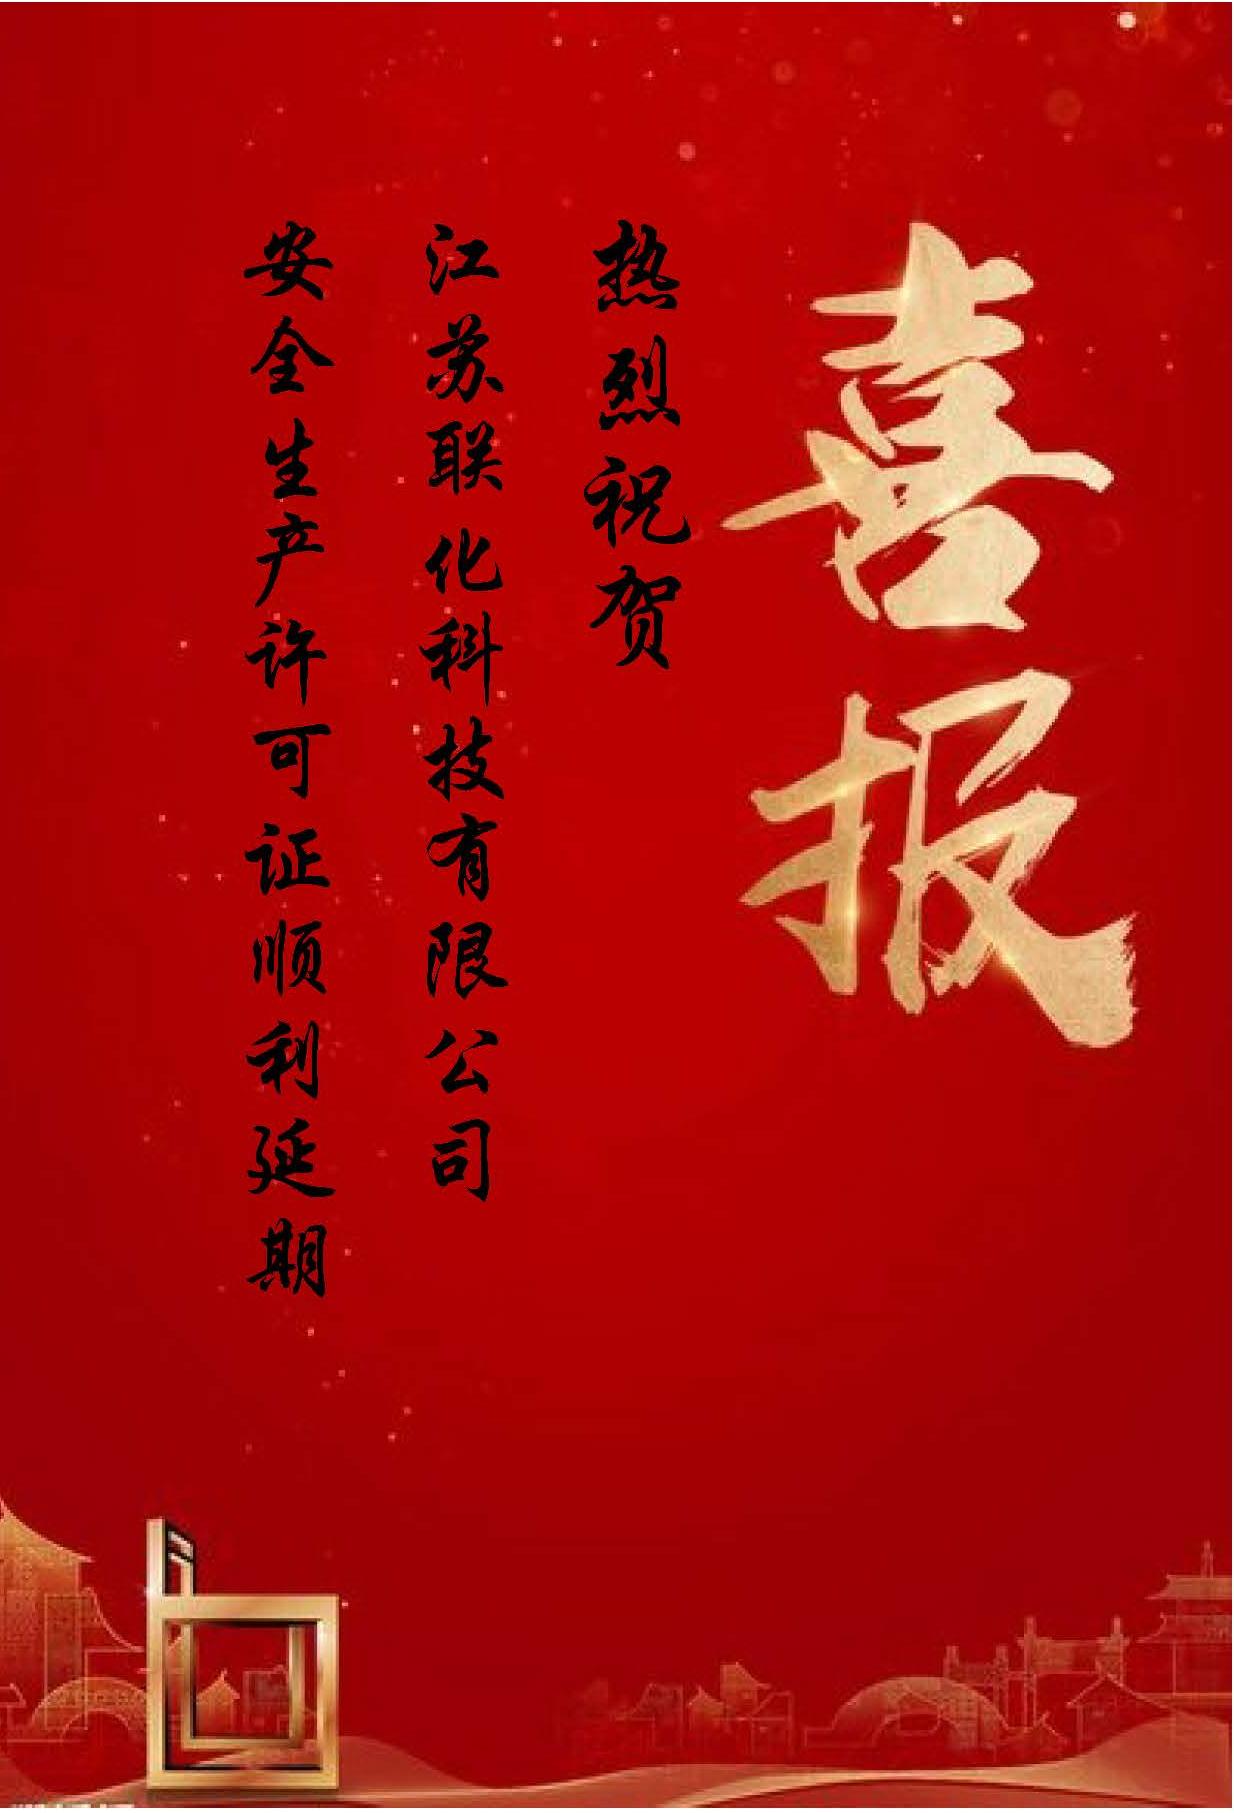 喜报
热烈祝贺
江苏联化科技有限公司
安全生产许可证顺利延期